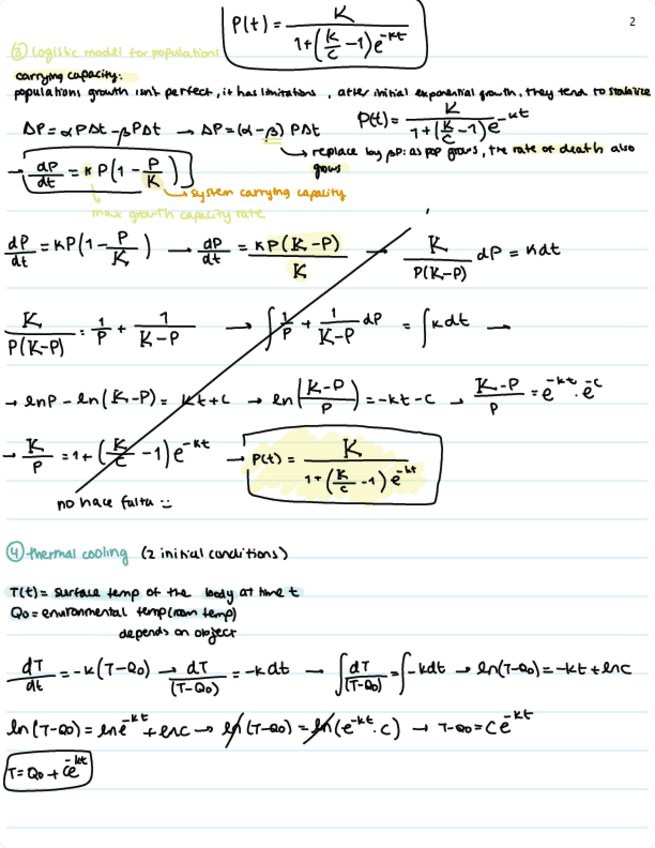 P(t) = K / (1+(K/c −1)e^−kt)
2
③ Logistic model for populations
carrying capacity:
populations growth isn't perfect, it has limitations, after initial exponential growth, they tend to stabilize
ΔP = αPΔt − βPΔt → ΔP = (α−β) PΔt
P(t) = K / (1+(K/c −1)e^−kt)
→ replace by βP: as pop grows, the rate of death also grows
→ dP/dt = k P(1 − P/K)
→ system carrying capacity
max growth capacity rate
dP/dt = kP(1 − P/K) → dP/dt = kP(K−P) / K → K / P(K−P) dP = kdt
K / P(K−P) = 1/P + 1/(K−P) → ∫ 1/P + 1/(K−P) dP = ∫kdt →
→ lnP − ln(K−P) = kt+c → ln((K−P)/P) = −kt−c → (K−P)/P = e^−kt · e^−c
→ K/P = 1+(K/c −1)e^−kt → P(t) = K / (1+(K/c −1)e^−kt)
no hace falta :)
④ thermal cooling (2 initial conditions)
T(t) = surface temp of the body at time t
Q0 = environmental temp (room temp)
depends on object
dT/dt = −k(T−Q0) → dT/(T−Q0) = −kdt → ∫dT/(T−Q0) = ∫−kdt → ln(T−Q0) = −kt + lnC
ln(T−Q0) = lne^−kt + lnC → ln(T−Q0) = ln(e^−kt · C) → T−Q0 = Ce^−kt
T = Q0 + Ce^−kt